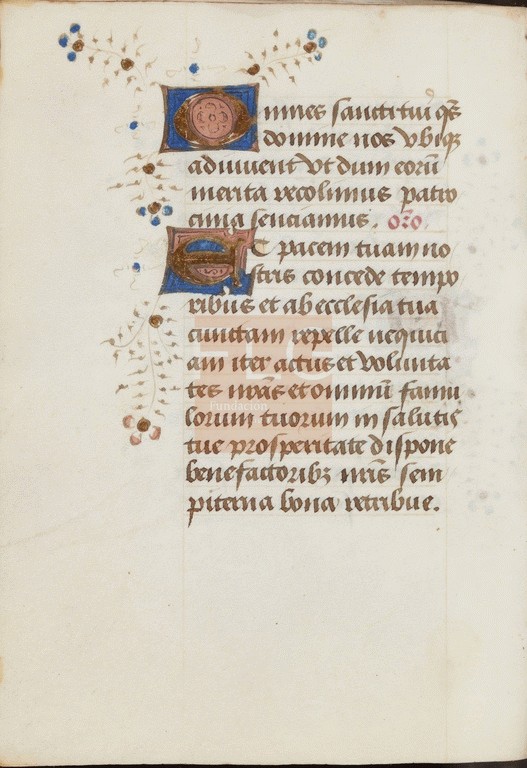 Omnes sancti tui qs̄
domine nos vbiqꝫ
adiuuent vt dum eorū
merita recolimus patro
cinia senciamus. or̄o.
Et pacem tuam no
stris concede tempo
ribus et ab ecclesia tua
cunctam repelle nequici
am iter actus et volunta
tes nr̄as et omniū famu
lorum tuorum in salutis
tue prosperitate dispone
benefactoribꝫ nr̄is sem
piterna bona retribue.
Fundación